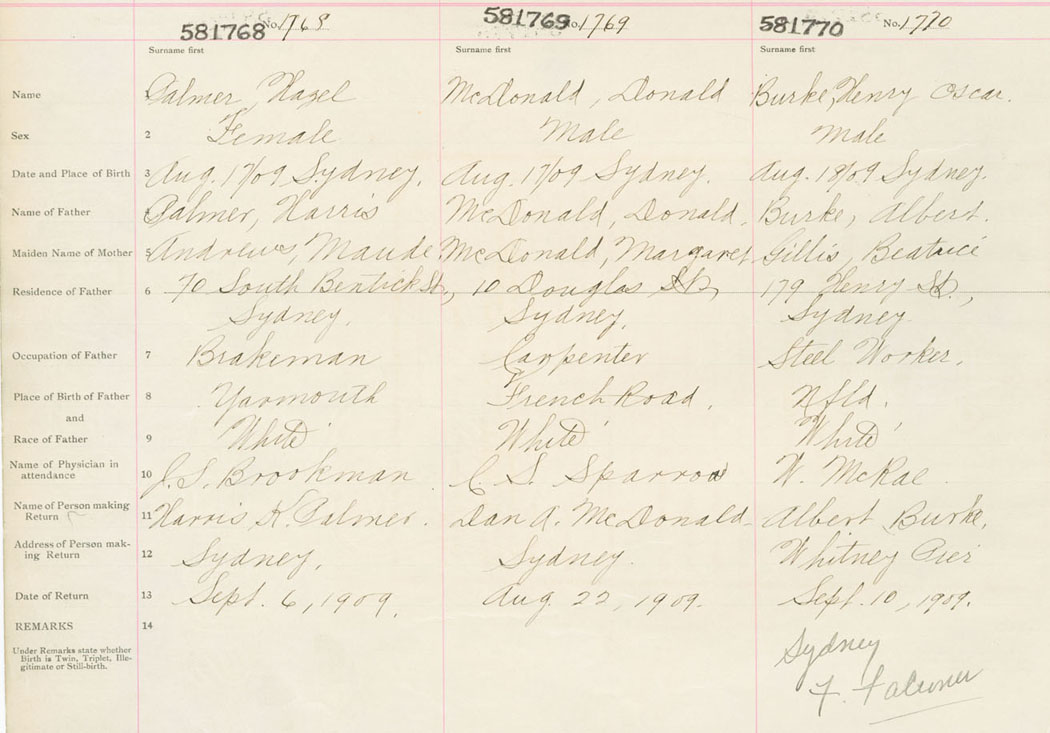 581768 No. 1768 581769 No. 1769 581770 No. 1770
Surname first Surname first Surname first
Name 1 Palmer, Hazel McDonald, Donald Burke, Henry Oscar.
Sex 2 Female Male Male
Date and Place of Birth 3 Aug. 17/09 Sydney. Aug. 17/09 Sydney. Aug. 18/09 Sydney.
Name of Father Palmer, Harris McDonald, Donald. Burke, Albert.
Maiden Name of Mother 5 Andrews, Maude McDonald, Margaret Gillis, Beatrice
Residence of Father 6 70 South Bentick St, 10 Douglas St, 179 Henry St.,
Sydney. Sydney. Sydney.
Occupation of Father 7 Brakeman Carpenter Steel Worker.
Place of Birth of Father 8 Yarmouth French Road. Nfld.
and
Race of Father 9 White White White
Name of Physician in
attendance 10 J. S. Brookman C. S. Sparrow W. McRae
Name of Person making
Return 11 Harris K. Palmer. Dan A. McDonald. Albert Burke.
Address of Person mak-
ing Return 12 Sydney. Sydney. Whitney Pier
Date of Return 13 Sept. 6, 1909. Aug. 22, 1909. Sept. 10, 1909.
REMARKS 14
Under Remarks state whether
Birth is Twin, Triplet, Ille-
gitimate or Still-birth.
Sydney
F. Falconer